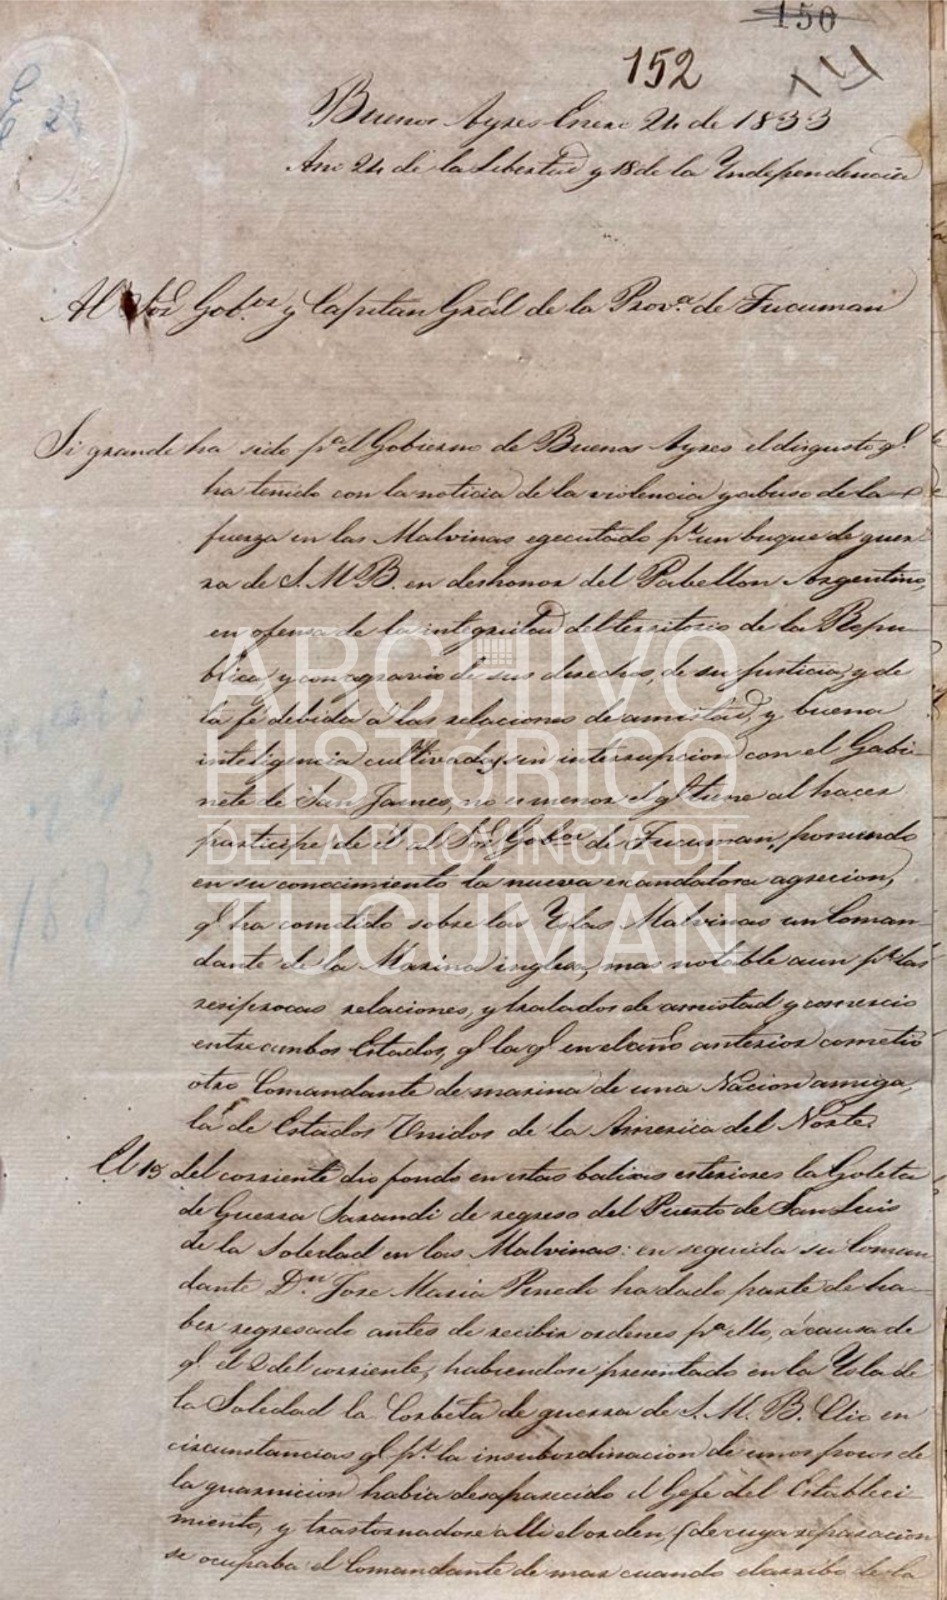 150
152
Buenos Ayres Enero 24 de 1833
Año 24 de la Libertad y 18 de la Yndependencia
Al Sor. Gob.or y Capitan Gral de la Prov.a de Tucuman
Si grande ha sido p.a el Gobierno de Buenos Ayres el disgusto q.e
ha tenido con la noticia de la violencia y abuso de la
fuerza en las Malvinas egecutado p.r un buque de guer-
ra de S. M. B. en deshonor del Pabellon Argentino,
en ofensa de la integridad del territorio de la Repu-
blica y con agravio de sus derechos, de su justicia, y de
la fé debida á las relaciones de amistad, y buena
inteligencia cultivadas sin interrupcion con el Gabi-
nete de San James, no es menor el q.e tiene al hacer
participe de él al Sor. Gob.or de Tucuman, poniendo
en su conocimiento la nueva escandalosa agrecion,
q.e ha cometido sobre las Yslas Malvinas un Coman-
dante de la Marina inglesa, mas notable aun p.r las
reciprocas relaciones, y tratados de amistad y comercio
entre ambos Estados, q.e la q.e en el año anterior cometió
otro Comandante de marina de una Nacion amiga,
la de Estados Unidos de la America del Norte.
El 15 del corriente dio fondo en estas balizas esteriores la Goleta
de Guerra Sarandi de regreso del Puerto de San Luis
de la Soledad en las Malvinas: en seguida su Coman-
dante D.n Jose Maria Pinedo ha dado parte de ha-
ber regresado antes de recibir ordenes p.a ello, á causa de
q.e el 2 del corriente, habiendose presentado en la Ysla de
la Soledad la Corbeta de guerra de S. M. B. Clio en
circunstancias q.e p.r la insubordinacion de unos pocos de
la guarnicion habia desaparecido el Gefe del Estableci-
miento, y trastornadose alli el orden, (de cuya reparacion
se ocupaba el Comandante de mar cuando el arribo de la
ARCHIVO
HISTÓRICO
DE LA PROVINCIA DE
TUCUMÁN